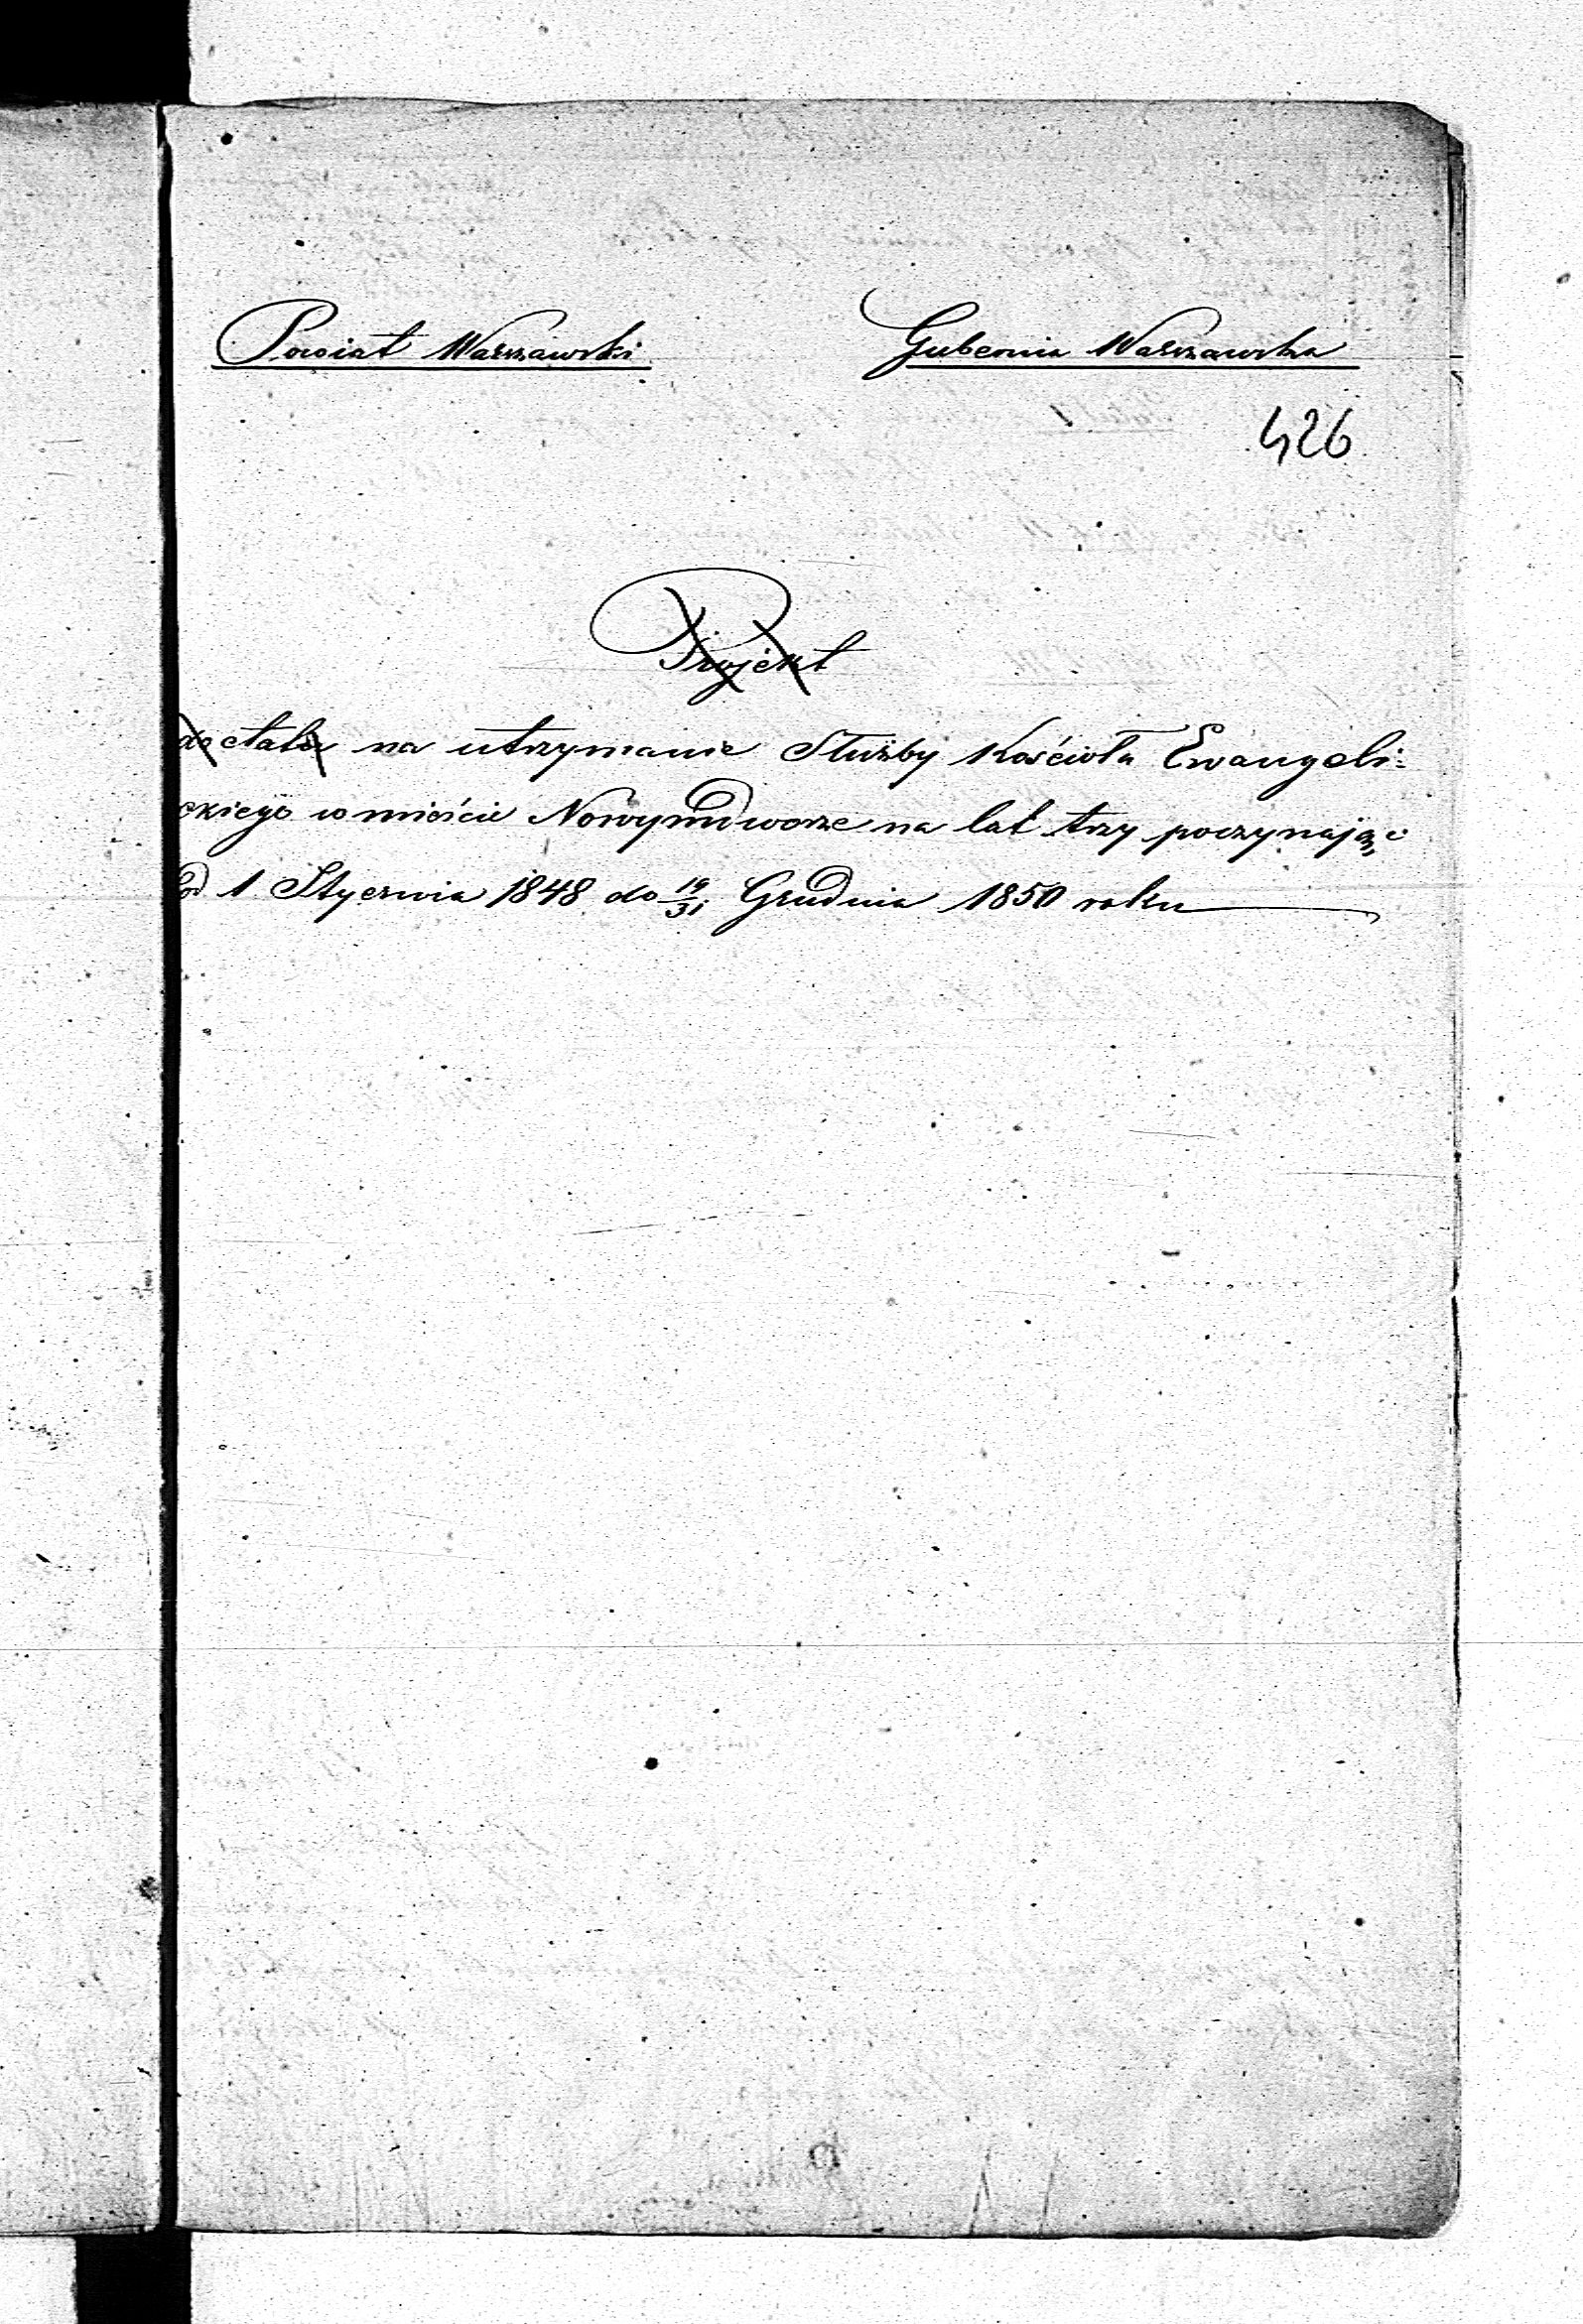 Powiat Warszawski Gubernia Warszawska
426
Projekt
do etatu na utrzymanie Służby Kościoła Ewangeli-
ckiego w mieście Nowymdworze na lat trzy poczynając
od 1 Stycznia 1848 do 19/31 Grudnia 1850 roku